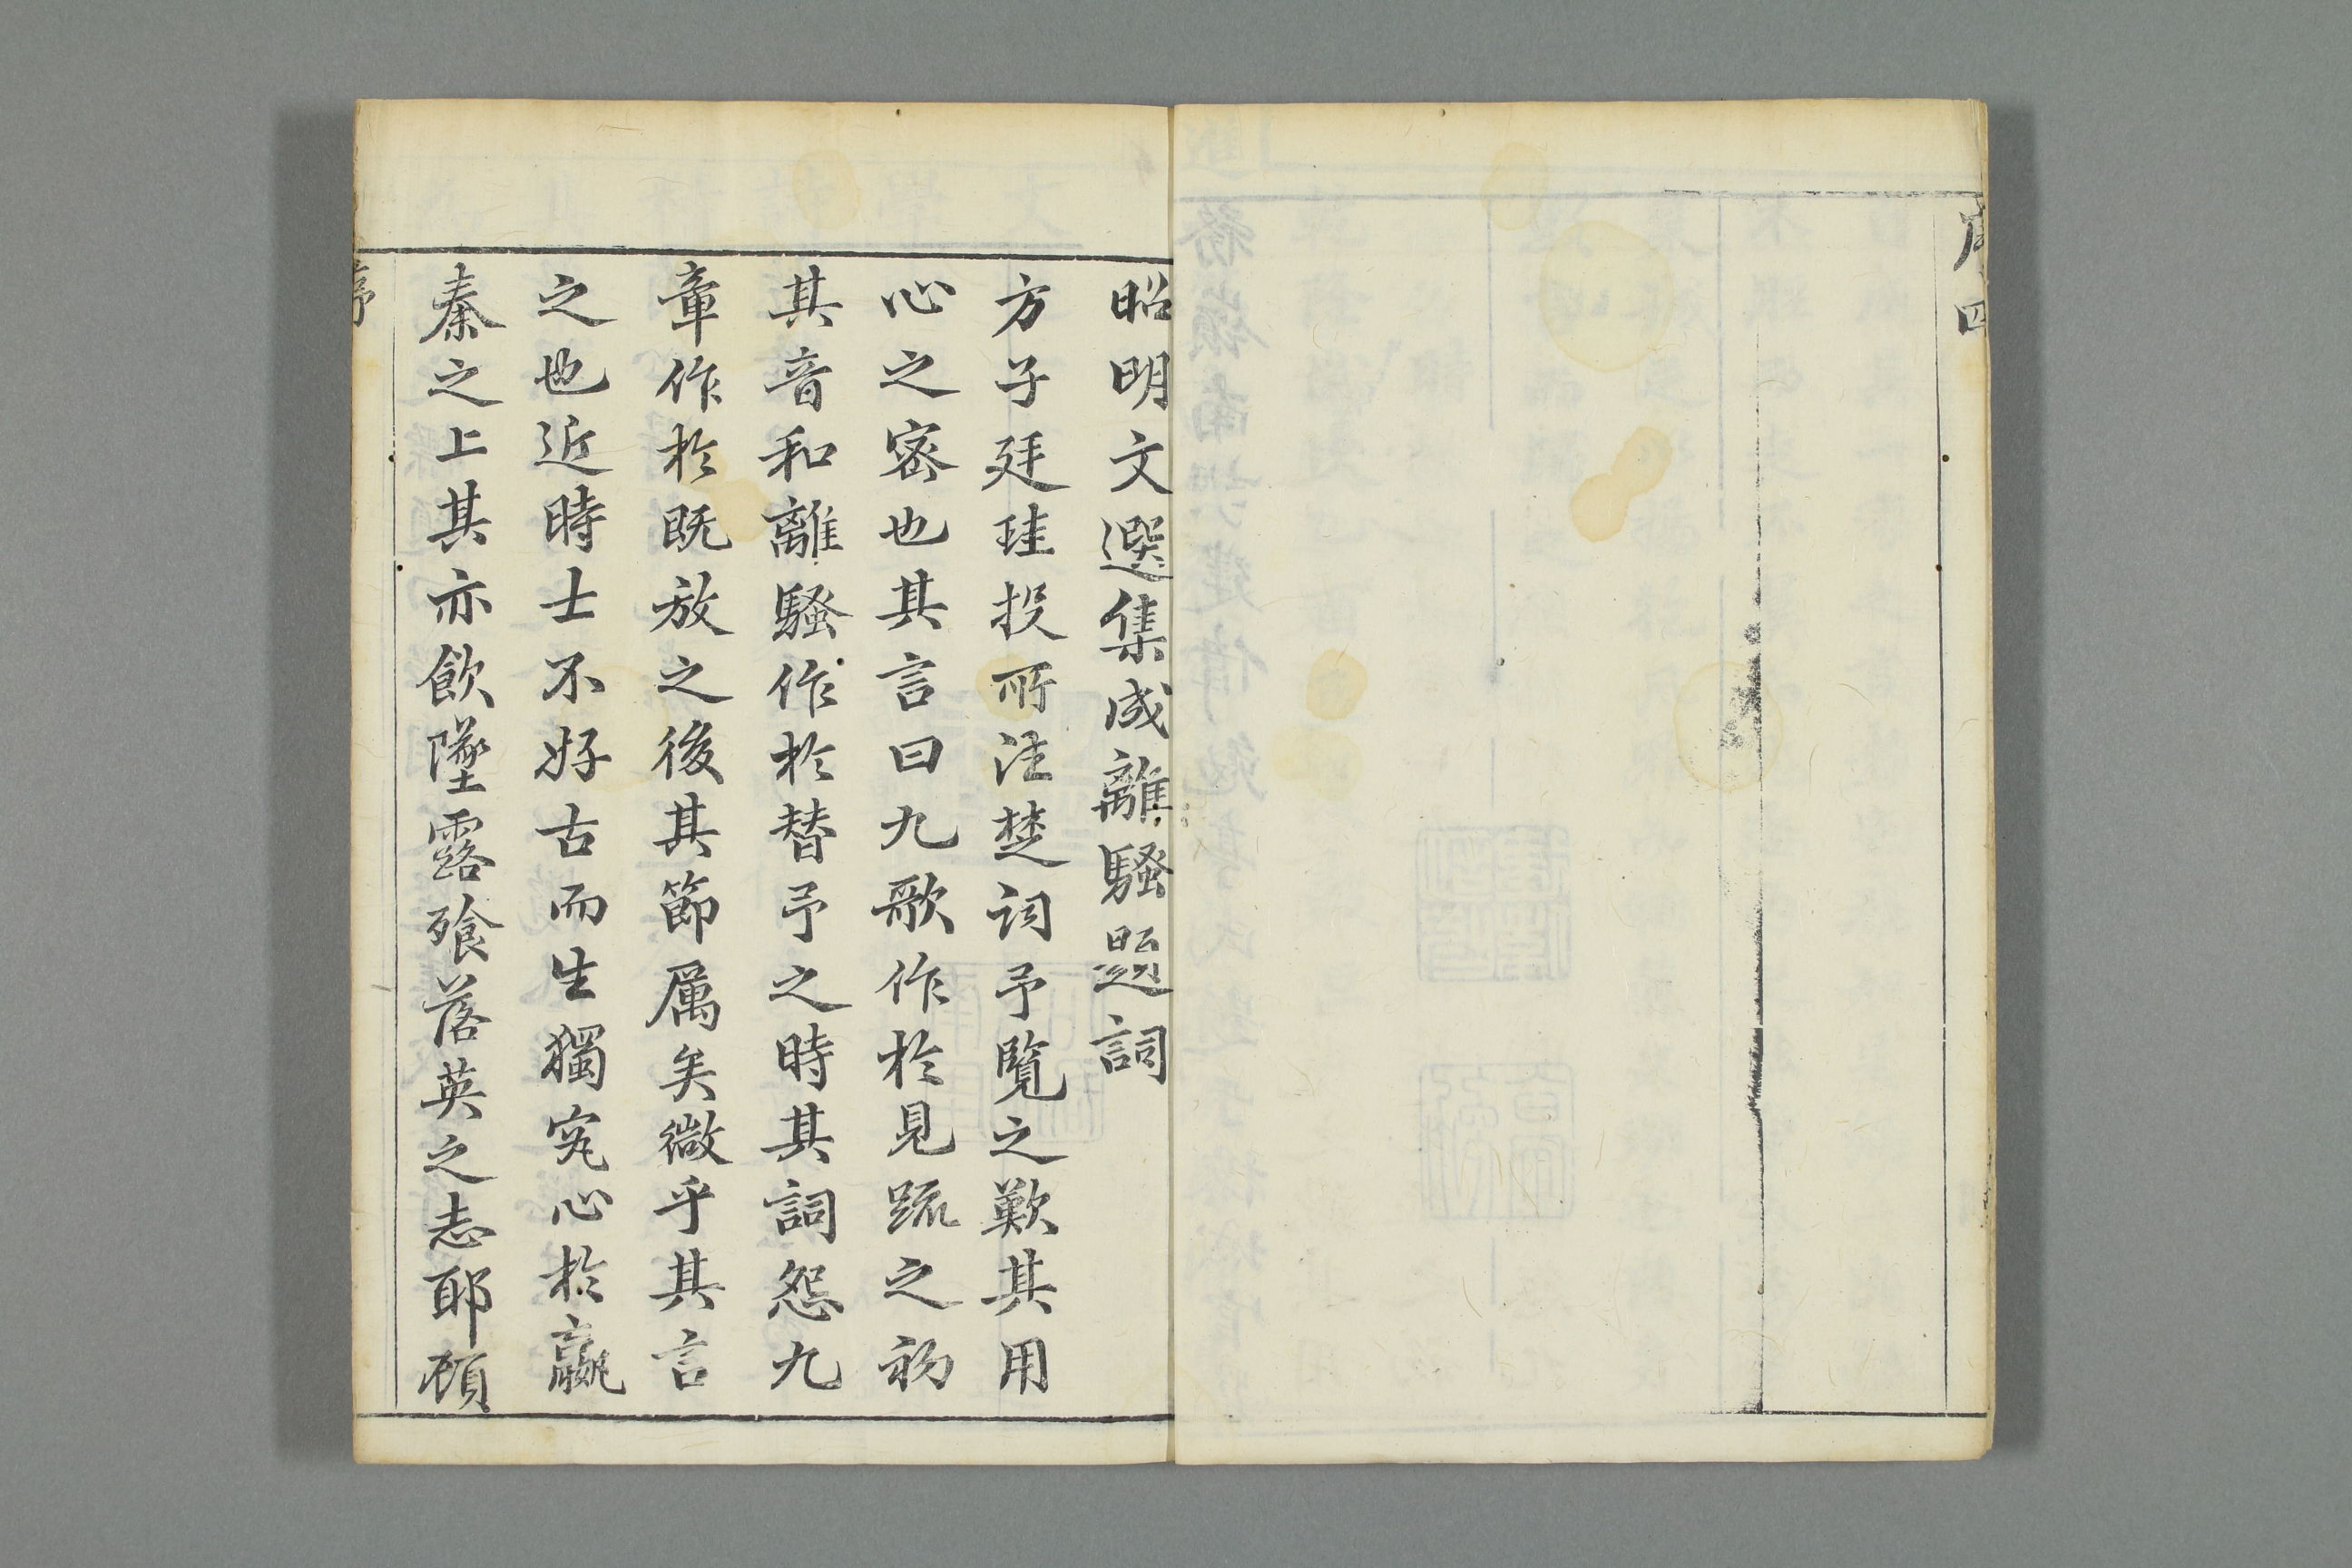 四
昭明文選集成離騷題詞
方子廷珪投所注楚词予覽之歎其用
心之密也其言曰九歌作於見疏之初
其音和離騷作於替予之時其詞怨九
章作於既放之後其節厲矣微乎其言
之也近時士不好古而生獨究心於嬴
秦之上其亦飲墜露飱落英之志耶顧
序